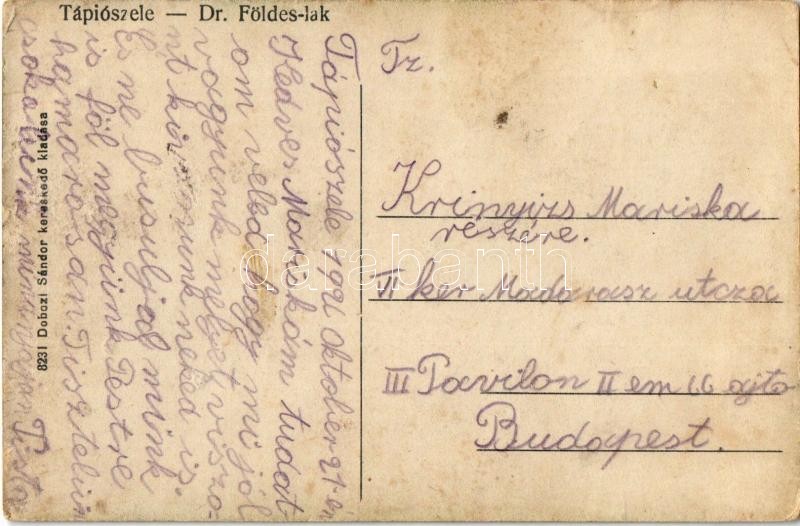 Tápiószele — Dr. Földes-lak
8231 Dobozi Sándor kereskedő kiadása
Tápiószele 1921 Oktober 21-én
Kedves Mariskám tudat
om veled hogy mi jól
vagyunk melyet viszo-
nt kivánunk neked is
És ne busulj al mink
is föl megyünk Pestre
hamarosan. Tisztelünk
csokolunk minnyájan Pista
Tz.
Krinyizs Mariska
részére.
II ker Madarasz utcza
III Pavilon II em 16 ajto
Budapest.
darabanth